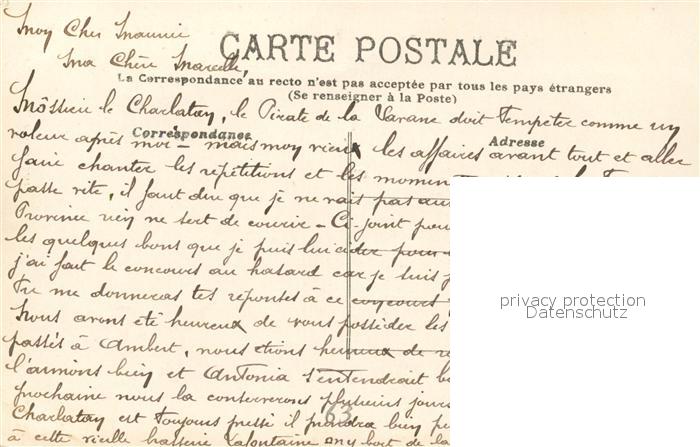 Mon Cher Maurice
Ma Chère Marcelle,
CARTE POSTALE
La Correspondance au recto n'est pas acceptée par tous les pays étrangers
(Se renseigner à la Poste)
Monsieur le Charlatan, le Pirate de la Varane doit tempêter comme un
voleur après moi – mais mon vieux les affaires avant tout et aller
Correspondance
Adresse
faire chanter les répétitions et les moments
passe vite, il faut dire que je ne vais pas au
Province rien ne sert de courir – Ci-joint pour
les quelques bons que je puis
j'ai fait le concours au hasard car je suis
Tu me donneras tes réponses à ce concours
Nous avons été heureux de vous posséder les
passés à Ambert, nous étions heureux de
l'aimons bien et Antonia s'entendrait
prochaine nous la conserverons plusieurs jours
63
Charlatan est toujours pressé il prendra bien
à cette vieille Lafontaine bort de la
privacy protection
Datenschutz